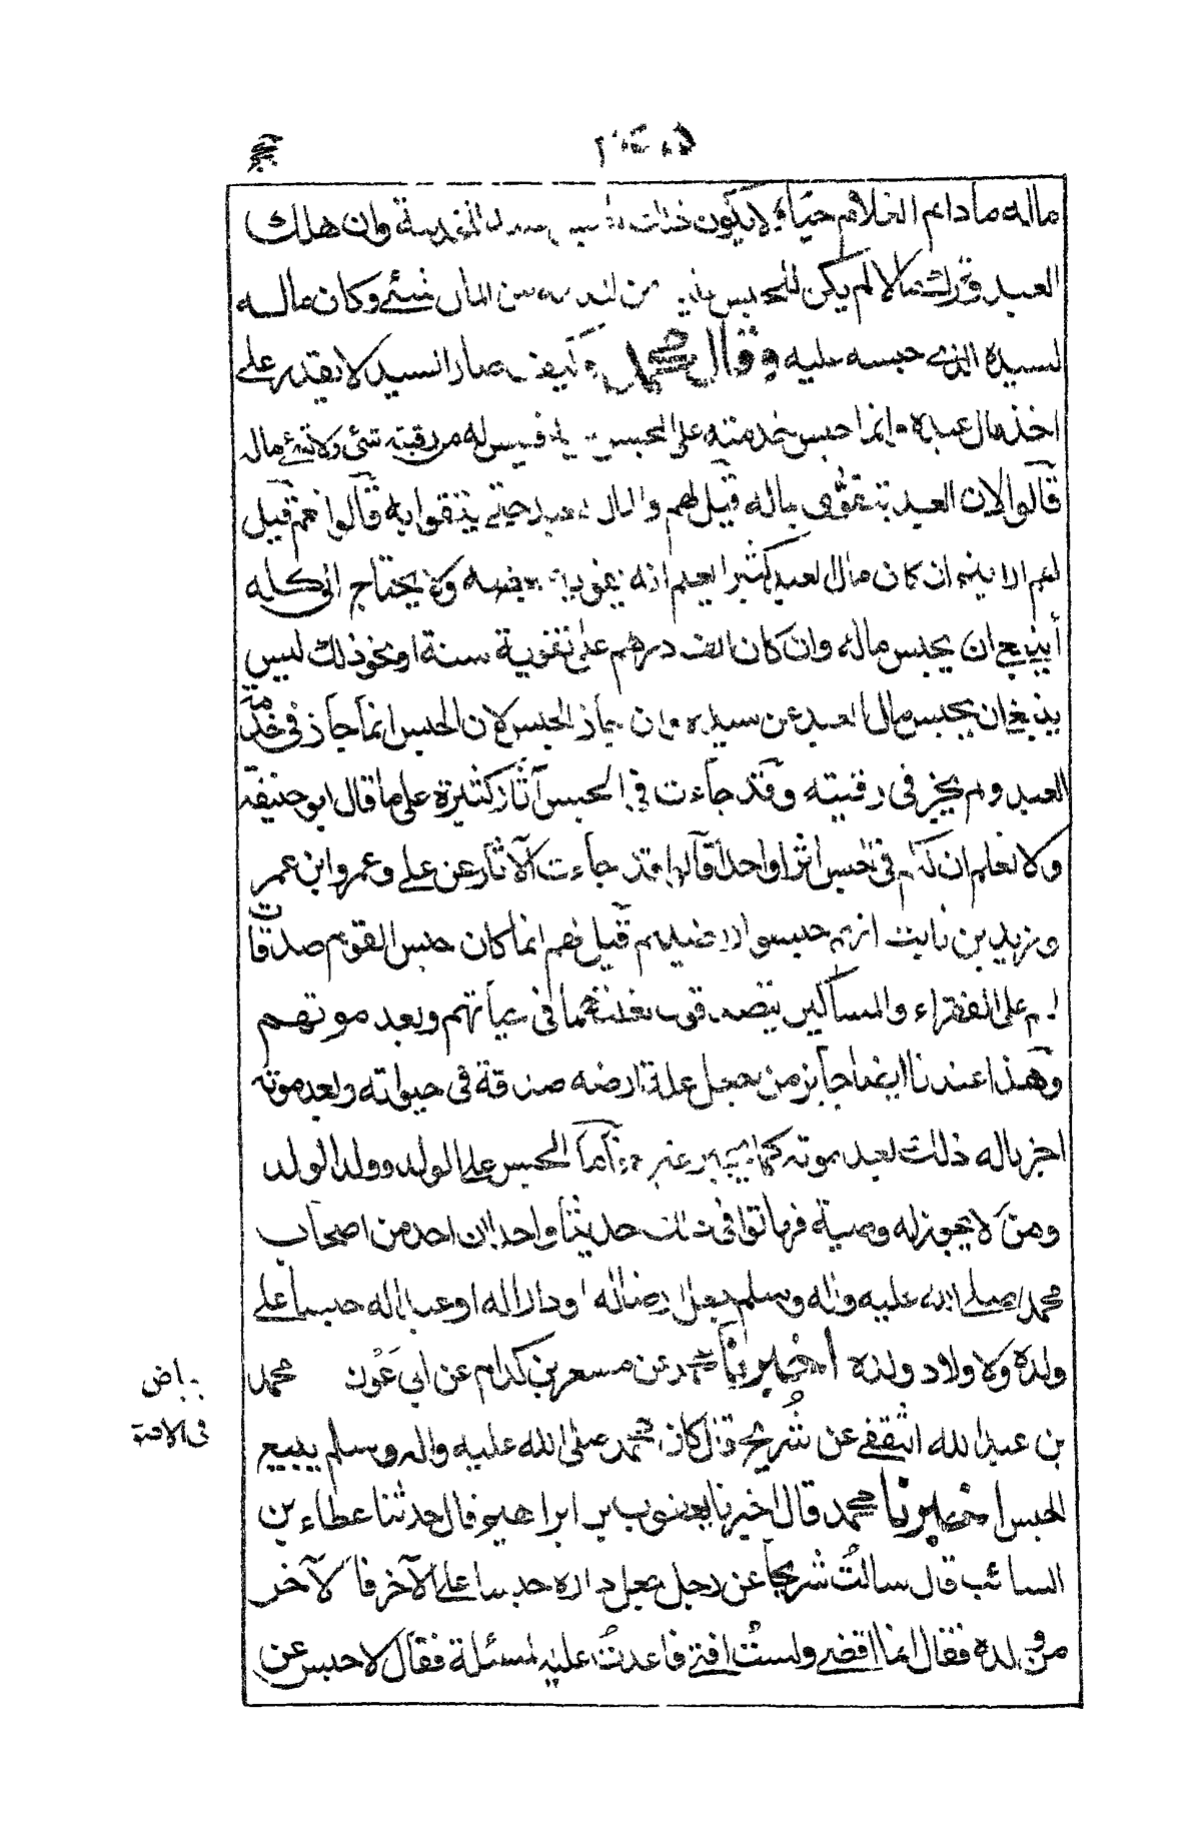 ماله مادام الغلام حياة لا يكون ذلك وان هلك
العبد وترك مالا لم يكن للمحبس من المال شئ وكان ماله
لسيده الذي حبسه عليه وقال محمد وكيف صار السيد لا يقدر على
اخذ مال عبده وانما حبس خدمته على المحبس فليس له من رقبته شئ ولا شئ ماله
قالوا لان العبد يتقوى بماله قيل لهم والمال للعبد حتى يتقوا به قالوا نعم قيل
لهم ارايتم ان كان مال العبد كثيرا يعلم انه يقويه بعضه ولا يحتاج الى كله
أينبغي ان يحبس ماله وان كان الف درهم على تقوية سنة او نحو ذلك ليس
ينبغي ان يحبس مال العبد عن سيده وان جاز الحبس لان الحبس انما جاز في خدمة
العبد ولم يجز في رقبته وقد جاءت في الحبس آثار كثيرة على ما قال ابو حنيفة
ولا نعلم ان لهم في الحبس اثرا واحدا قالوا قد جاءت الآثار عن علي وعمر وابن عمر
وزيد بن ثابت انهم حبسوا ارضيهم قيل لهم انما كان حبس القوم صدقات
لهم على الفقراء والمساكين يتصدقون بغلتهما في حياتهم وبعد موتهم
وهذا عندنا ايضا جايز من جعل غلة ارضه صدقة في حيوته وبعد موته
اجزنا له ذلك بعد موته كما يجيز غيره فأما الحبس على الولد وولد الولد
ومن لا يجوز له وصية فهاتوا في ذلك حديثا واحدا ان احد من اصحاب
محمد صلى الله عليه واله وسلم جعل ارضا له او دارا له او عبدا له حبسا على
ولده ولاولاد ولده اخبرنا محمد عن مسعر بن كدام عن ابي عون محمد
بن عبد الله الثقفي عن شريح قال كان محمد صلى الله عليه واله وسلم يبيع
الحبس اخبرنا محمد قال اخبرنا يعقوب بن ابراهيم قال حدثنا عطاء بن
السائب قال سالت شريحا عن رجل جعل داره حبسا على الآخر فالآخر
من ولده فقال انما اقضي ولست افتي فاعدت عليه المسئلة فقال لا حبس عن
بياض
في الاصل